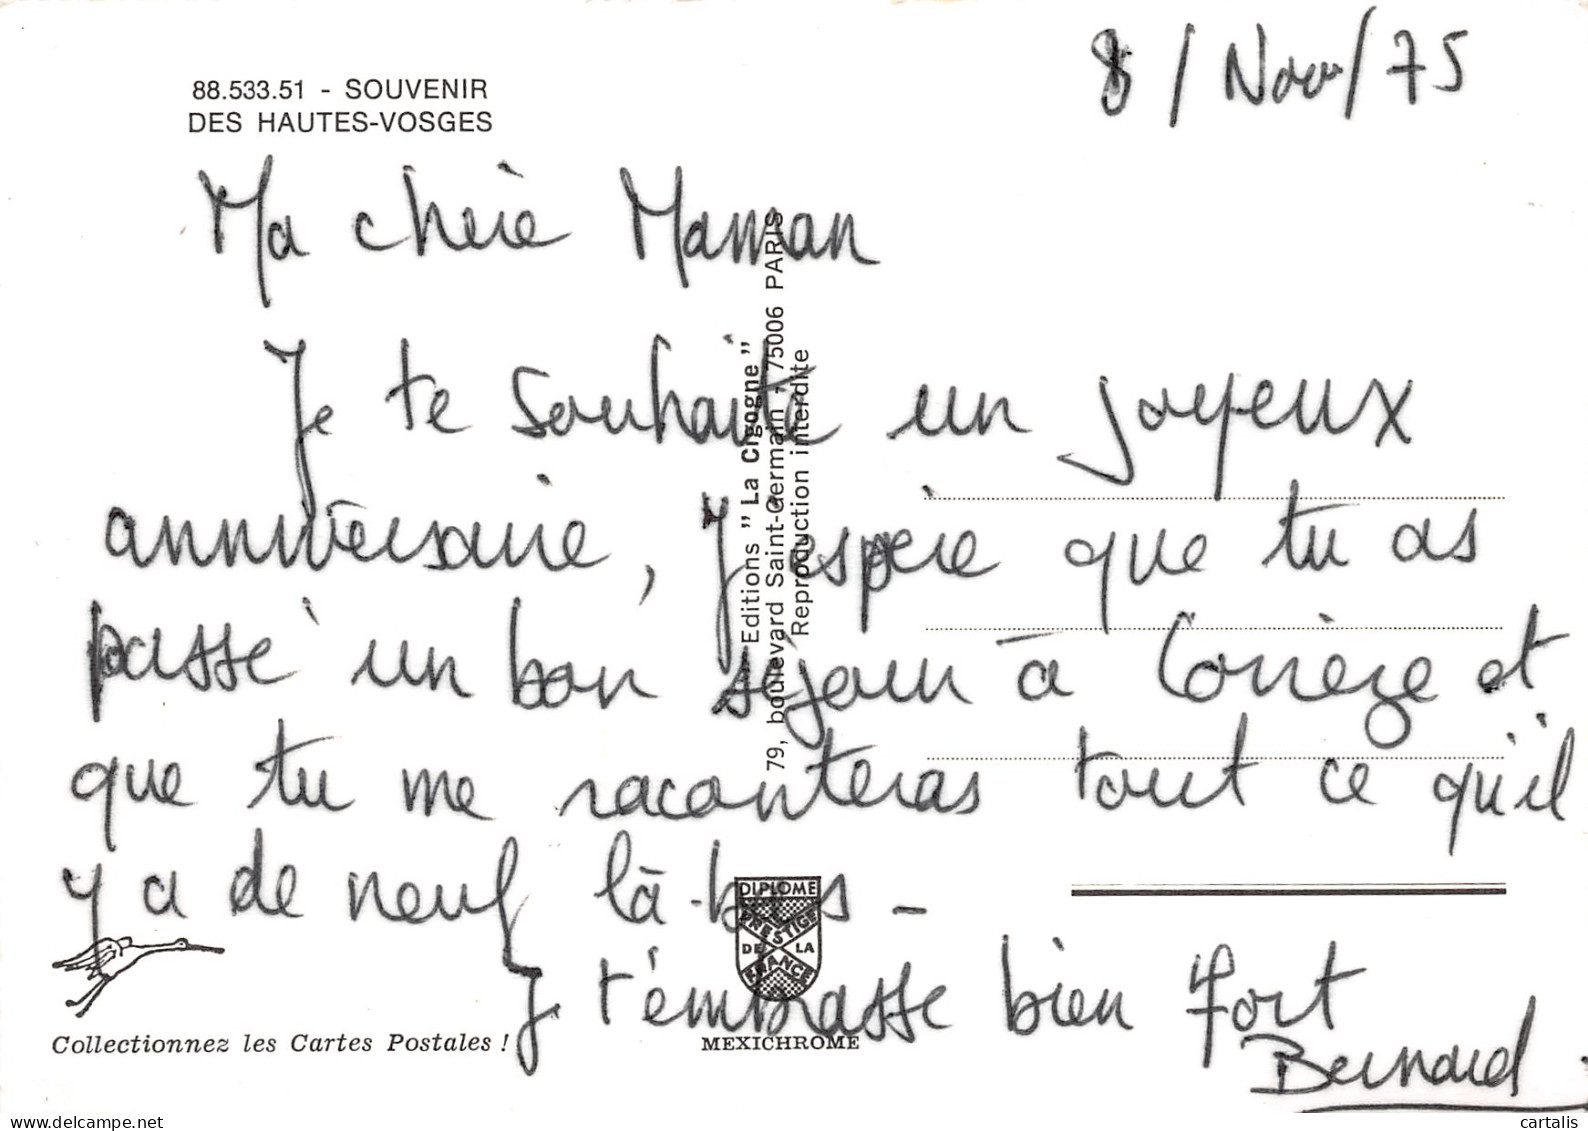 8/Nov/75
88.533.51 - SOUVENIR
DES HAUTES-VOSGES
Ma chère Maman
Je te souhaite un joyeux
anniversaire, J'espère que tu as
passé un bon séjour à Corrèze et
que tu me raconteras tout ce qu'il
y a de neuf là-bas -
Je t'embrasse bien fort
Bernard
Editions " La Cigogne "
79, boulevard Saint-Germain - 75006 PARIS
Reproduction interdite
DIPLOME
PRESTIGE
DE LA
FRANCE
MEXICHROME
Collectionnez les Cartes Postales !
delcampe.net
cartalis